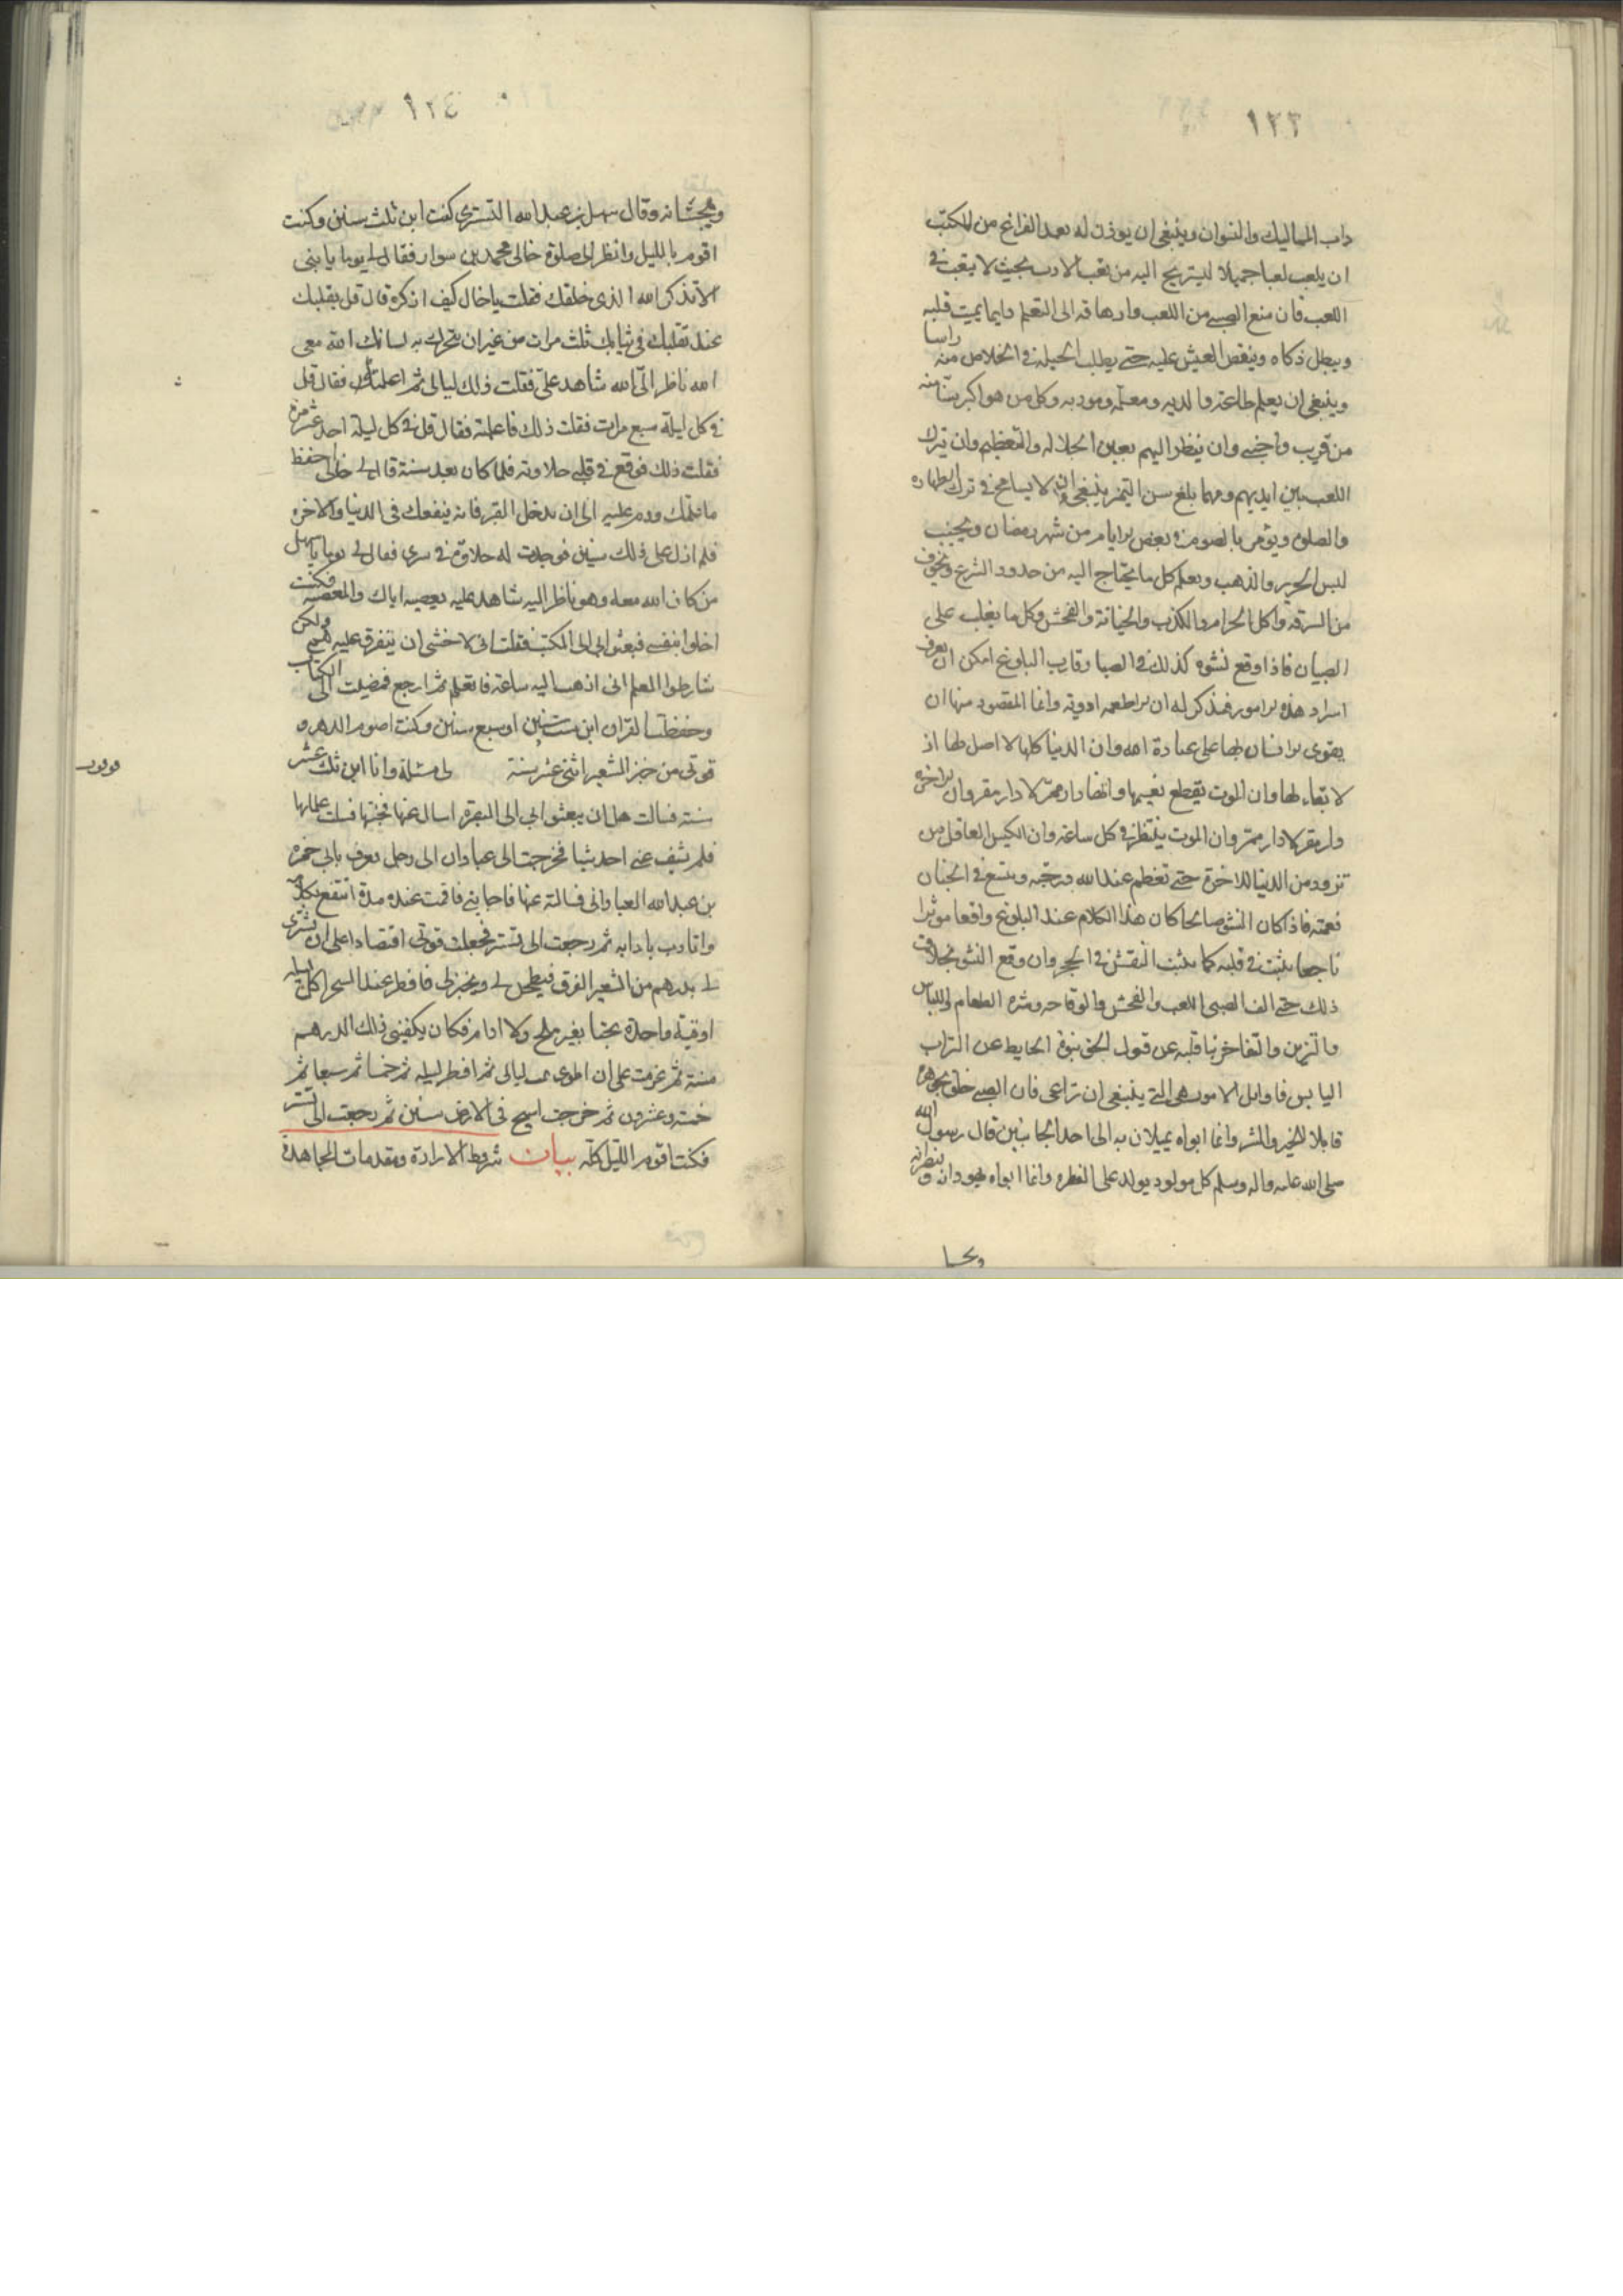 ١٢٣
داب المماليك والنسوان وينبغي ان يوذن له بعد الفراغ من المكتب
ان يلعب لعبا جميلا ليستريح اليه من تعب الادب بحيث لا يتعب في
اللعب فان منع الصبي من اللعب وارهاقه الى التعلم دايما يميت قلبه
ويبطل ذكاه وينغص العيش عليه حتى يطلب الحيلة في الخلاص منه راسا
وينبغي ان يعلم طاعة والديه ومعلمه ومودبه وكل من هو اكبر سنا منه
من قريب واجنبي وان ينظر اليهم بعين الجلالة والتعظيم وان يترك
اللعب بين ايديهم ومهما بلغ سن التميز ينبغي وان لا يسامح في ترك الطهارة
والصلوة ويؤمر بالصوم في بعض الايام من شهر رمضان ويجنب
لبس الحرير والذهب ويعلم كل ما يحتاج اليه من حدود الشرع ويخوف
من السرقة واكل الحرام والكذب والخيانة والفحش وكل ما يغلب على
الصبيان فاذا وقع نشوه كذلك في الصبا وقارب البلوغ امكن ان يعرف
اسرار هذه الامور فيذكر له ان الاطعمه ادوية وانما المقصود منها ان
يقوى الانسان بها على عبادة الله وان الدنيا كلها لا اصل لها اذ
لا بقاء لها وان الموت يقطع نعيمها وانها دار ممر لا دار مقر وان الاخرة
دار مقر لا دار ممر وان الموت ينتظر في كل ساعة وان الكيس العاقل من
تزود من الدنيا للاخرة حتى تعظم عند الله درجته ويتسع في الجنان
نعمته فاذا كان النشو صالحا كان هذا الكلام عند البلوغ واقعا موثرا
ناجعا يثبت في قلبه كما يثبت النقش في الحجر وان وقع النشو بخلاف
ذلك حتى الف الصبي اللعب والفحش والوقاحه وشره الطعام واللباس
والتزين والتفاخر نبا قلبه عن قبول الحق نبو الحايط عن التراب
اليابس فاوايل الامور هي التي ينبغي ان تراعى فان الصبي خلق بجوهره
قابلا للخير والشر وانما ابواه يميلان به الى احد الجانبين قال رسول الله
صلى الله عليه واله وسلم كل مولود يولد على الفطره وانما ابواه يهودانه وينصرانه
ويمجسا
١٢٤
ويمجسانه وقال سهل بن عبد الله التستري كنت ابن ثلث سنين وكنت
اقوم بالليل وانظر الى صلوة خالي محمد بن سوار فقال لي يوما يا بني
الا تذكر الله الذي خلقك فقلت يا خال كيف اذكره قال قل بقلبك
عند تقلبك في ثيابك ثلث مرات من غير ان تحرك به لسانك الله معي
الله ناظر الي الله شاهد علي فقلت ذلك ليالي ثم اعلمته فقال قل
في كل ليلة سبع مرات فقلت ذلك فاعلمته فقال قل في كل ليلة احد عشر مرة
فقلت ذلك فوقع في قلبي حلاوته فلما كان بعد سنة قال لي خالي احفظ
ما علمتك ودم عليه الى ان تدخل القبر فانه ينفعك في الدنيا والاخرة
فلم ازل على ذلك سنين فوجدت له حلاوة في سري فقال لي يوما يا سهل
من كان الله معه وهو ناظر اليه شاهد عليه يعصيه اياك والمعصية فكنت
اخلو بنفسي فبعثوا بي الى المكتب فقلت اني لاخشى ان يتفرق عليه همي ولكن
شارطوا المعلم اني اذهب اليه ساعة فاتعلم ثم ارجع فمضيت الى الكتاب
وحفظت القران ابن ست سنين او سبع سنين وكنت اصوم الدهر و
قوتي من خبز الشعير اثنتي عشر سنة لي مسئلة وانا ابن ثلث عشر
سنة فسالت هل ان يبعثوا بي الى البصرة اسال عنها فجئتها فسالت علماها
فلم يشف عني احد شيئا فخرجت الى عبادان الى رجل يعرف بابي حمزه
بن عبد الله العباداني فسالته عنها فاجابني فاقمت عنده مدة انتفع بكلامه
واتادب بادابه ثم رجعت الى تستر فجعلت قوتي اقتصادا على ان يشترى
لي بدرهم من الشعير الفرق فيطحن لي ويخبز لي فافطر عند السحر كل ليله
اوقية واحدة بحتا بغير ملح ولا ادام فكان يكفيني ذلك الدرهم
سنة ثم عزمت على ان اطوي ليالي ثم افطر ليله ثم خمسا ثم سبعا ثم
خمسة وعشرون ثم خرجت اسيح في الارض سنين ثم رجعت الى تستر
فكنت اقوم الليل كله بيان شروط الارادة ومقدمات المجاهدة